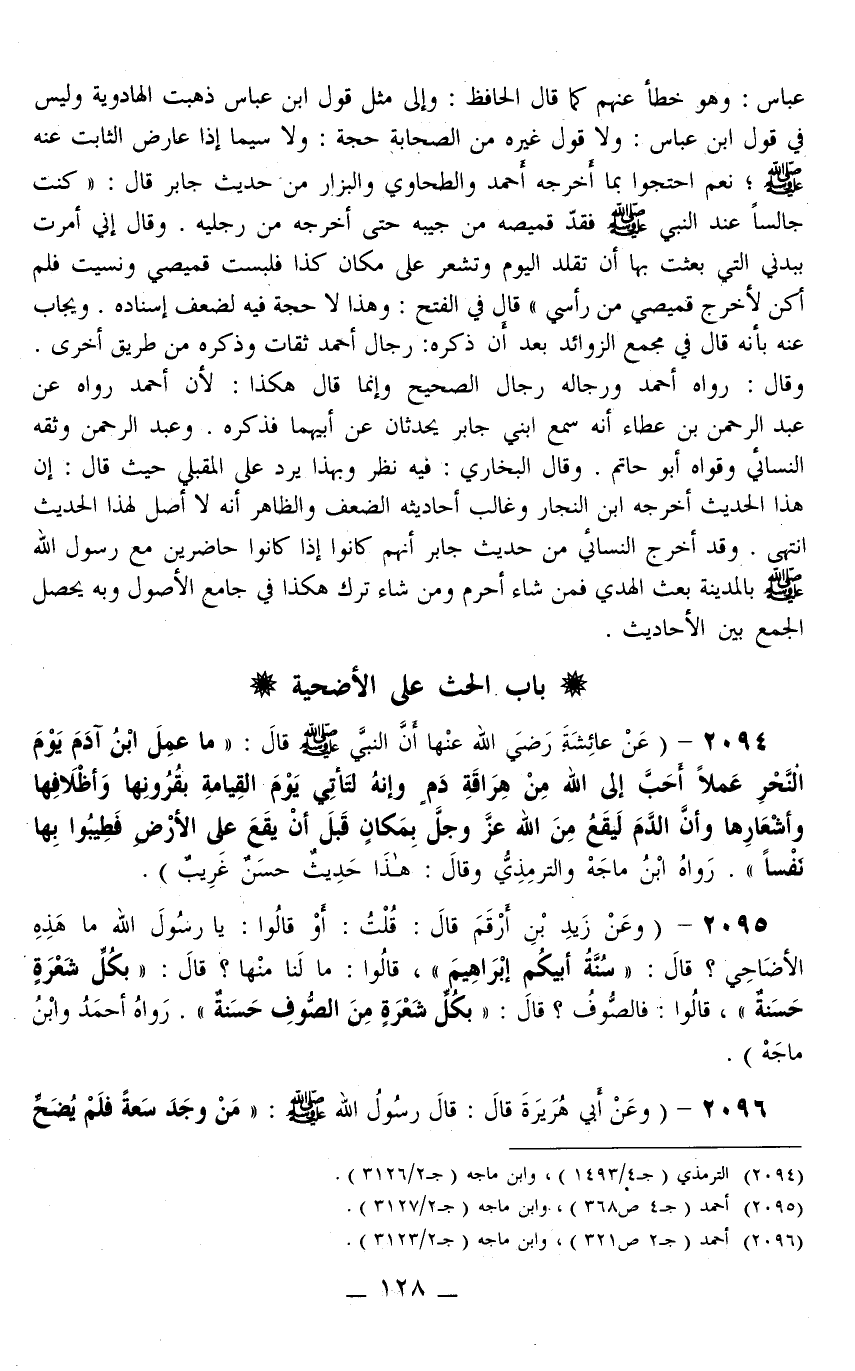 عباس : وهو خطأ عنهم كما قال الحافظ : وإلى مثل قول ابن عباس ذهبت الهادوية وليس
في قول ابن عباس : ولا قول غيره من الصحابة حجة : ولا سيما إذا عارض الثابت عنه
ﷺ ؛ نعم احتجوا بما أخرجه أحمد والطحاوي والبزار من حديث جابر قال : « كنت
جالساً عند النبي ﷺ فقدّ قميصه من جيبه حتى أخرجه من رجليه . وقال إني أمرت
ببدني التي بعثت بها أن تقلد اليوم وتشعر على مكان كذا فلبست قميصي ونسيت فلم
أكن لأخرج قميصي من رأسي » قال في الفتح : وهذا لا حجة فيه لضعف إسناده . ويجاب
عنه بأنه قال في مجمع الزوائد بعد أن ذكره: رجال أحمد ثقات وذكره من طريق أخرى .
وقال : رواه أحمد ورجاله رجال الصحيح وإنما قال هكذا : لأن أحمد رواه عن
عبد الرحمن بن عطاء أنه سمع ابني جابر يحدثان عن أبيهما فذكره . وعبد الرحمن وثقه
النسائي وقواه أبو حاتم . وقال البخاري : فيه نظر وبهذا يرد على المقبلي حيث قال : إن
هذا الحديث أخرجه ابن النجار وغالب أحاديثه الضعف والظاهر أنه لا أصل لهذا الحديث
انتهى . وقد أخرج النسائي من حديث جابر أنهم كانوا إذا كانوا حاضرين مع رسول الله
ﷺ بالمدينة بعث الهدي فمن شاء أحرم ومن شاء ترك هكذا في جامع الأصول وبه يحصل
الجمع بين الأحاديث .
❋ باب الحث على الأضحية ❋
٢٠٩٤ – ( عَنْ عائِشَةَ رَضيَ الله عنْها أَنَّ النبيَّ ﷺ قالَ : « ما عمِلَ ابْنُ آدَمَ يَوْمَ
الْنَّحْرِ عَملاً أَحَبَّ إلى الله مِنْ هِرَاقَةِ دَمٍ وإنهُ لتَأتِي يَوْمَ القِيامةِ بقُرُونِها وَأظْلَافِها
وأشْعَارِها وأنَّ الدَّمَ لَيقَعُ مِنَ الله عزَّ وجلَّ بِمَكانٍ قَبلَ أنْ يقَعَ على الأرْضِ فَطِيبُوا بِها
نَفْساً » . رَواهُ ابْنُ ماجَهْ والترمِذيُّ وقالَ : هـٰذَا حَدِيثٌ حسَنٌ غَرِيبٌ ) .
٢٠٩٥ – ( وعَنْ زَيدِ بْنِ أَرْقَمَ قالَ : قُلْتُ : أوْ قالُوا : يا رسُولَ الله ما هَذِهِ
الأضَاحِي ؟ قالَ : « سُنَّةُ أبيكم إبْرَاهِيمَ » ، قالُوا : ما لَنا منْها ؟ قالَ : « بكُلِّ شَعْرَةٍ
حَسَنةٌ » ، قالُوا : فالصُّوفُ ؟ قالَ : « بكُلِّ شعْرَةٍ مِنَ الصُّوفِ حَسَنةٌ » . رَواهُ أحمَدُ وابْنُ
ماجَهْ ) .
٢٠٩٦ – ( وعَنْ أَبي هُرَيرَةَ قالَ : قالَ رسُولُ الله ﷺ : « مَنْ وجَدَ سَعةً فلَمْ يُضَحِّ
(٢٠٩٤) الترمذي ( جـ٤/١٤٩٣ ) ، وابن ماجه ( جـ٢/٣١٢٦ ) .
(٢٠٩٥) أحمد ( جـ٤ ص٣٦٨ ) ، وابن ماجه ( جـ٢/٣١٢٧ ) .
(٢٠٩٦) أحمد ( جـ٢ ص٣٢١ ) ، وابن ماجه ( جـ٢/٣١٢٣ ) .
_ ١٢٨ _